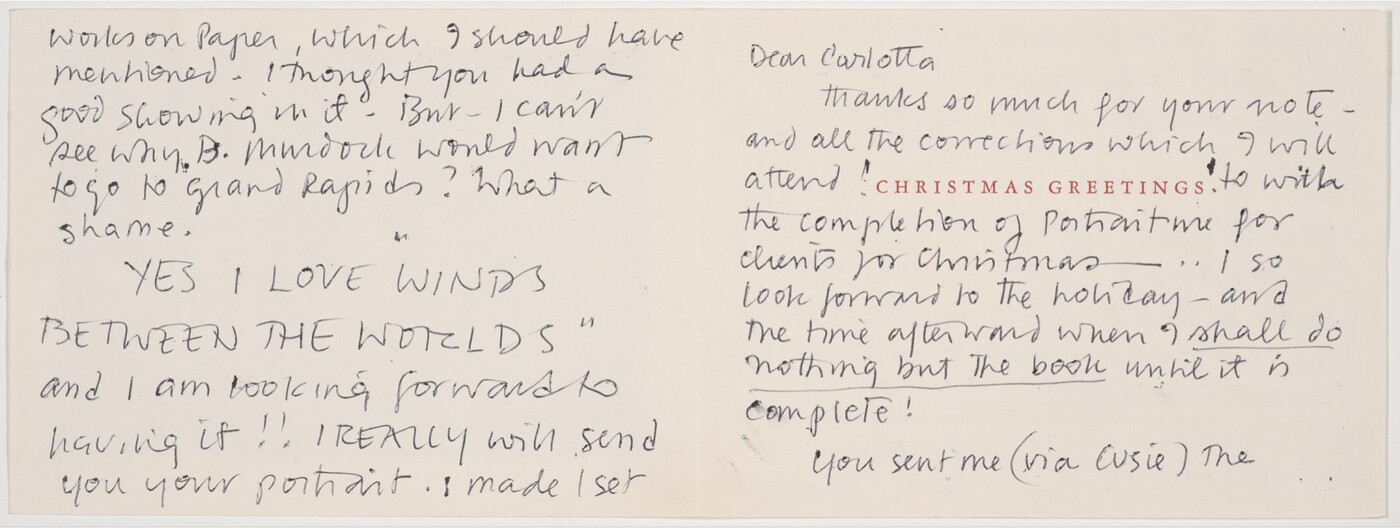 Dear Carlotta
thanks so much for your note -
and all the corrections which I will
attend ! CHRISTMAS GREETINGS ! to with
the completion of Portraiture for
clients for Christmas — .. I so
look forward to the holiday - and
the time afterward when I shall do
nothing but the book until it is
complete !
You sent me (via Cusie) The
Works on Paper, which I should have
mentioned - I thought you had a
good showing in it - But - I can't
see why B. Murdock would want
to go to Grand Rapids? What a
shame.
"YES I LOVE WINDS
BETWEEN THE WORLDS"
and I am looking forward to
having it !! I REALLY will send
you your portrait . I made 1 set